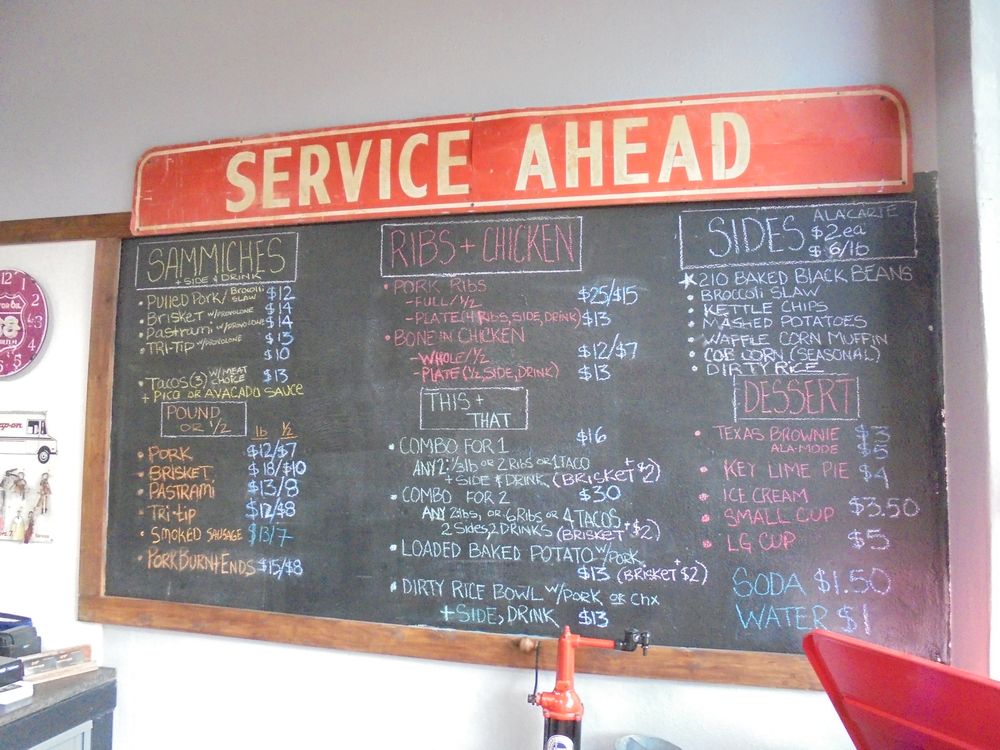 SERVICE AHEAD
SAMMICHES
+ SIDE & DRINK
• Pulled Pork/ Broccoli SLAW $12
• BRISKET w/PROVOLONE $14
• Pastrami w/PROVOLONE $14
• TRI-TIP w/PROVOLONE $13
$10
• TACOS (3) W/MEAT CHOICE $13
+ PICO OR AVACADO SAUCE
POUND OR 1/2
lb 1/2
• PORK $12/$7
• BRISKET $18/$10
• PASTRAMI $13/8
• Tri-tip $12/$8
• SMOKED SAUSAGE $13/7
• PORK BURNT ENDS $15/$8
RIBS + CHICKEN
• PORK RIBS
- FULL/½ $25/$15
- PLATE (4 RIBS, SIDE, DRINK) $13
• BONE IN CHICKEN
- WHOLE/½ $12/$7
- PLATE (½, SIDE, DRINK) $13
THIS +
THAT
• COMBO FOR 1 $16
ANY 2: ⅓lb OR 2 RIBS OR 1 TACO
+ SIDE & DRINK (BRISKET +$2)
• COMBO FOR 2 $30
ANY 2lbs, OR 6 RIBS OR 4 TACOS
2 Sides, 2 DRINKS (BRISKET +$2)
• LOADED BAKED POTATO w/PORK
$13 (BRISKET $2)
• DIRTY RICE BOWL w/PORK OR CHX
+SIDE, DRINK $13
SIDES
ALACARTE
$2 ea
$6/lb
210 BAKED BLACK BEANS
• BROCCOLI SLAW
• KETTLE CHIPS
• MASHED POTATOES
• WAFFLE CORN MUFFIN
• COB CORN (SEASONAL)
• DIRTY RICE
DESSERT
• TEXAS BROWNIE $3
ALA-MODE $5
• KEY LIME PIE $4
• ICE CREAM
• SMALL CUP $3.50
• LG CUP $5
SODA $1.50
WATER $1